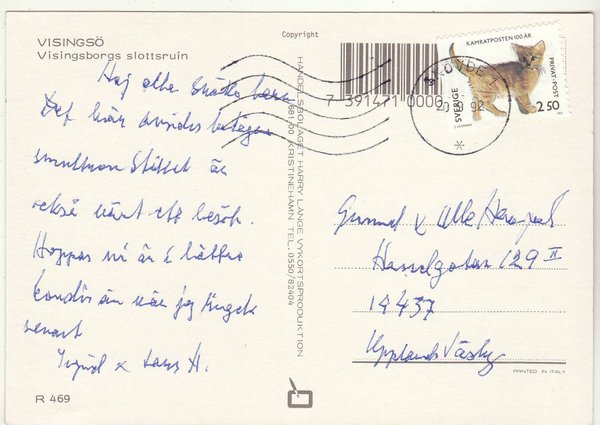 VISINGSÖ
Visingsborgs slottsruin
Hej alla
Det här
smultron stället är
också värt ett besök.
Hoppas ni är i bättre
kondis än när jag ringde
senast
Ingrid & Lars H.
R 469
Copyright
HANDELSBOLAGET HARRY LANGE VYKORTSPRODUKTION
681 00 KRISTINEHAMN TEL. 0550/82404
7 391471 0006
SKÖVDE 1
20 92
*
KAMRATPOSTEN 100 ÅR
PRIVAT-POST
SVERIGE
2 50
Gunnel & Olle
Hasselgatan 129 II
19437
Upplands Väsby
PRINTED IN ITALY